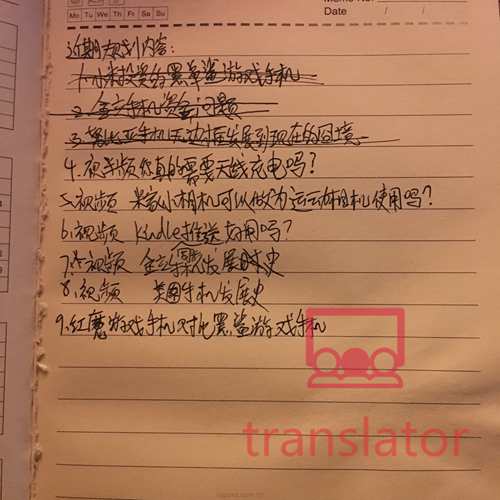 Memo No.
Mo Tu We Th Fr Sa Su
Date / /
近期规划内容:
1.小米投资的黑鲨游戏手机
2.金立手机资金问题
3.努比亚手机无边框发展到现在的困境
4.视频 你真的需要无线充电吗?
5.视频 米家小相机可以做为运动相机使用吗?
6.视频 Kindle推送好用吗?
7.视频 金立 发展史
8.视频 美图手机发展史
9.红魔游戏手机对比黑鲨游戏手机
translator